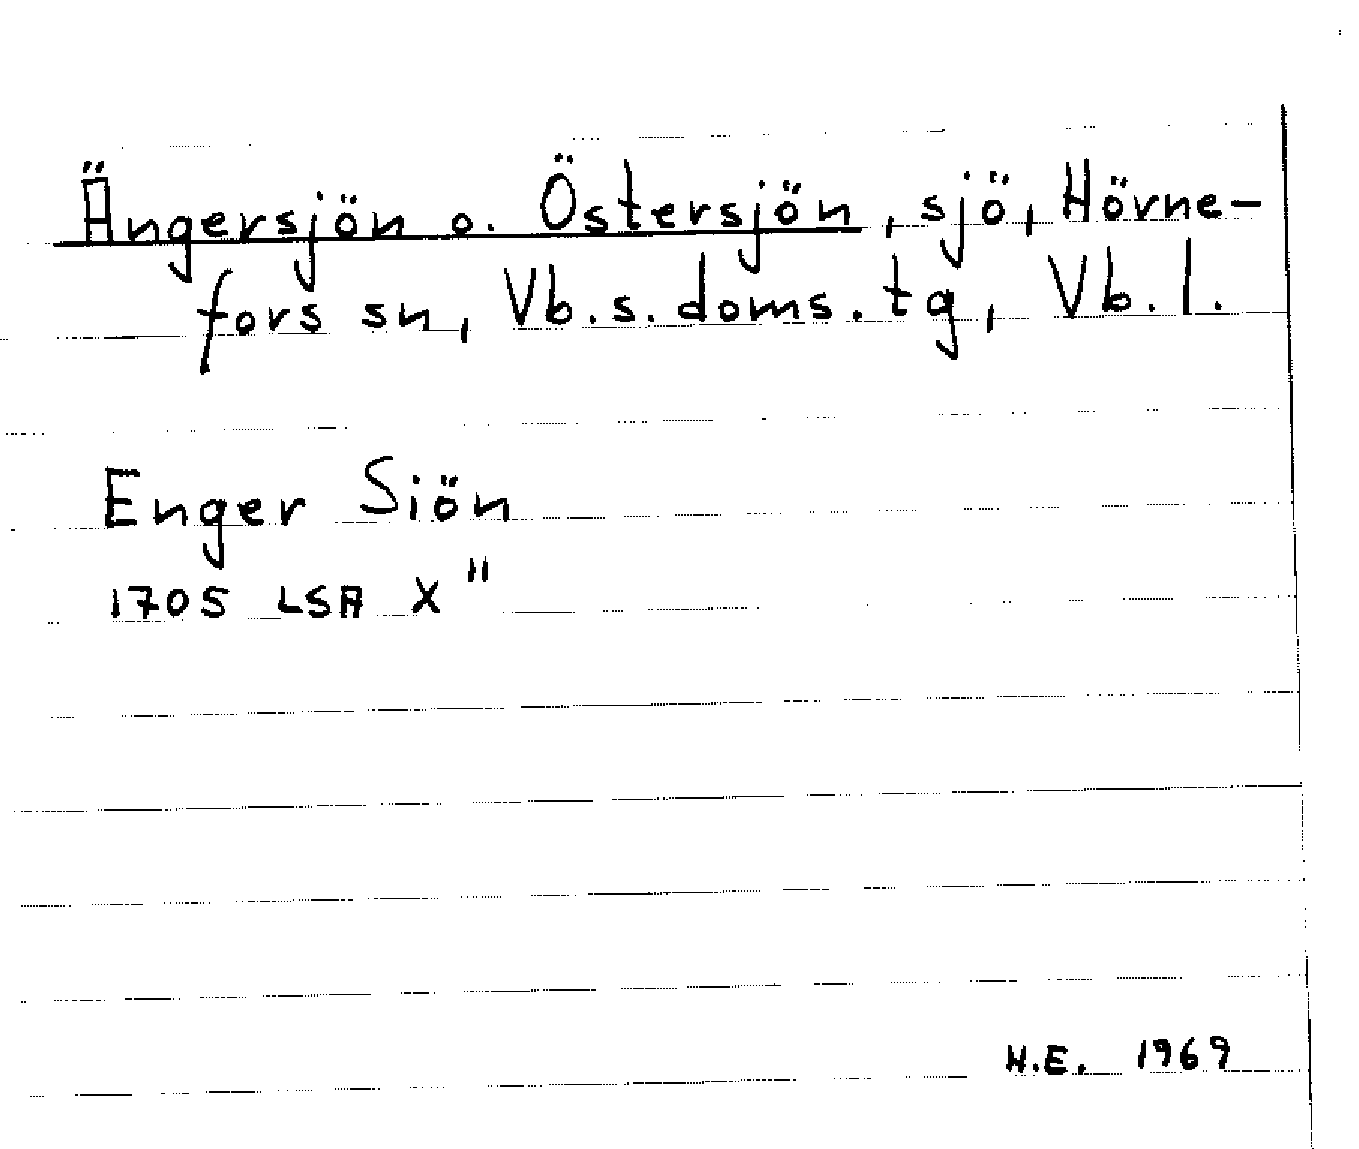 Ängersjön o. Östersjön, sjö, Hörne-
fors sn, Vb.s.doms.tg, Vb.l.
Enger Siön
1705 LSA X"
H.E. 1969